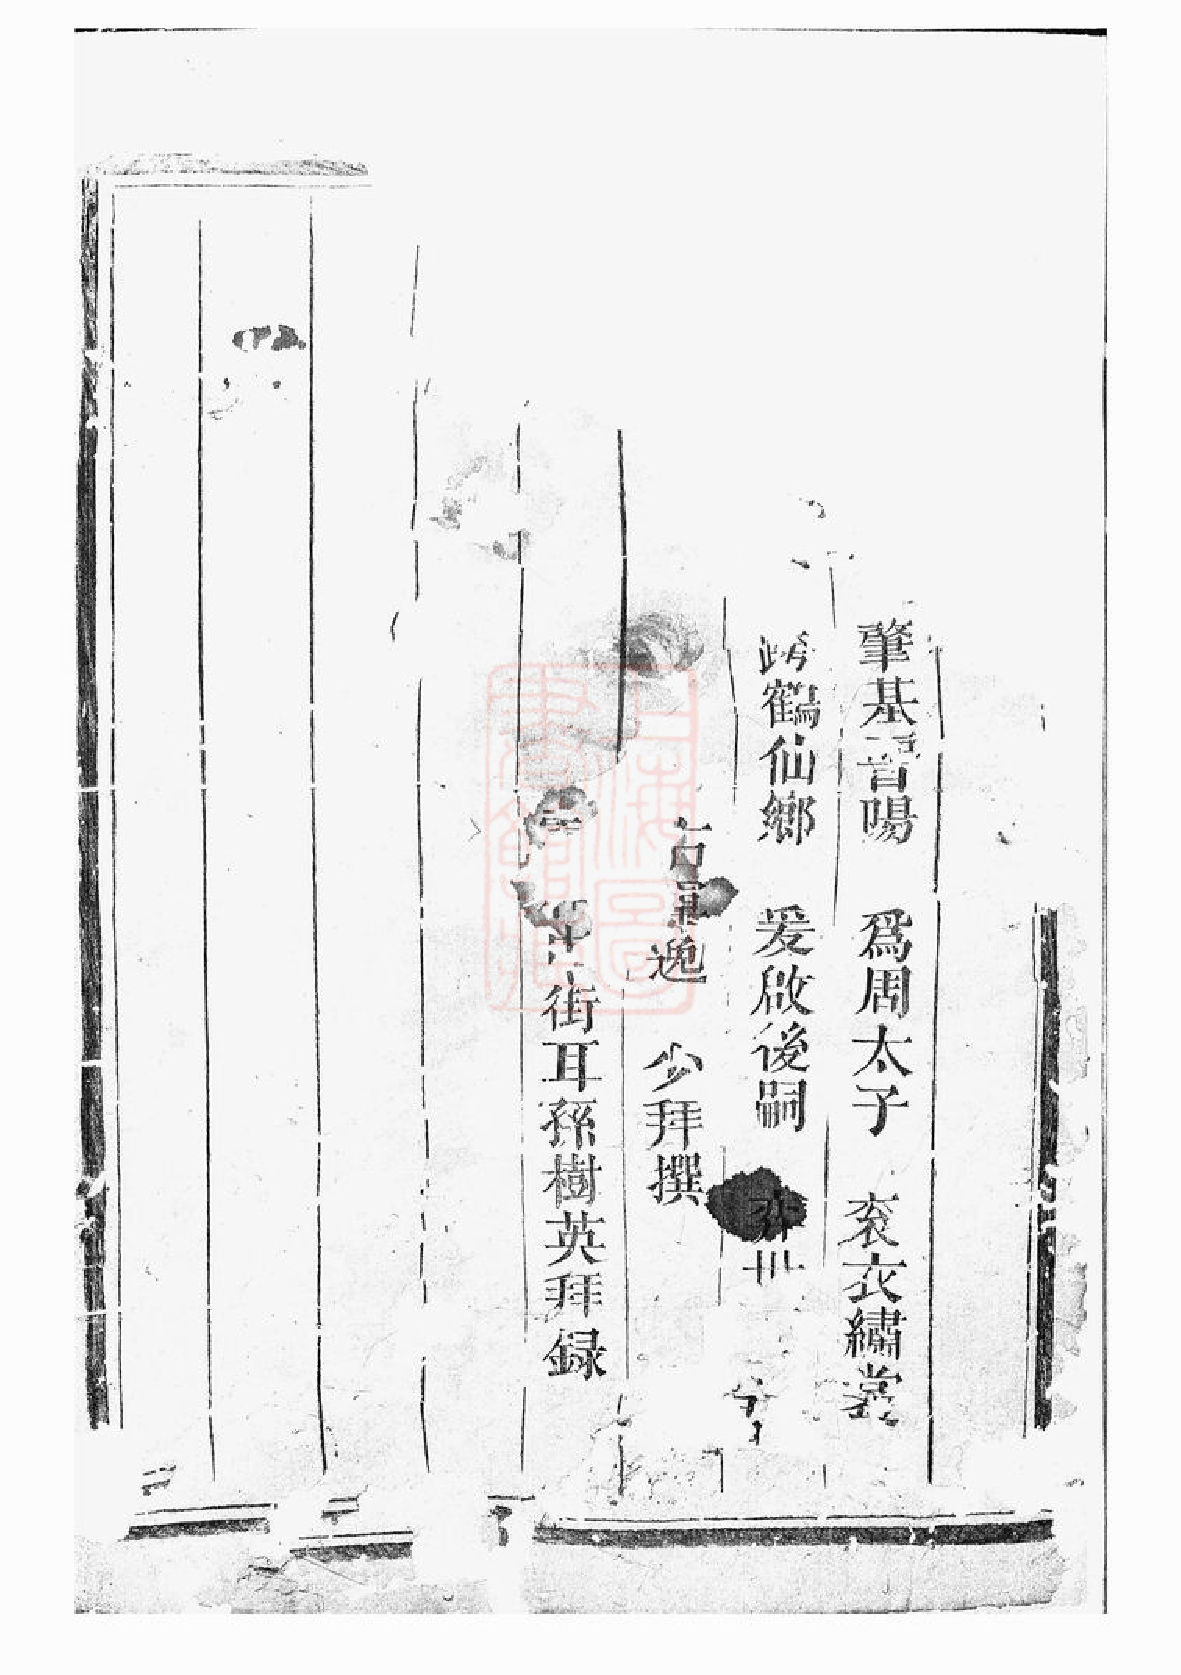 肇基晋陽　爲周太子　衮衣繡裳
跨鶴仙鄉　爰啟後嗣　奕世
逸少拜撰
街耳孫樹英拜録
上海圖書館藏